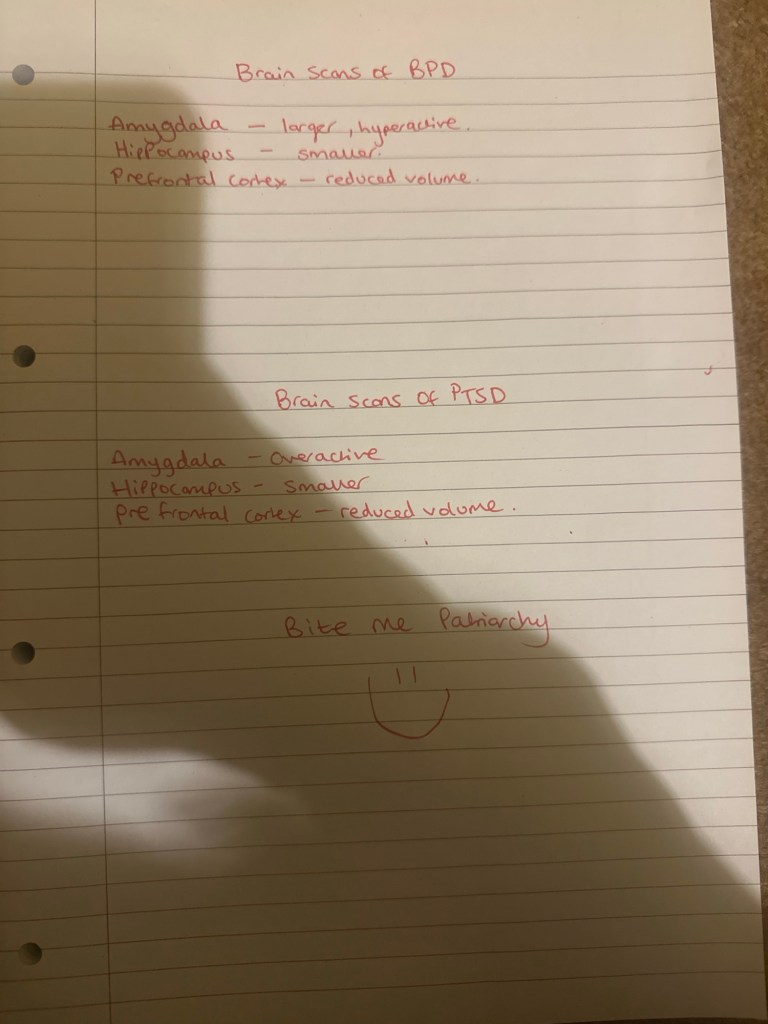 Brain scans of BPD
Amygdala — larger, hyperactive.
Hippocampus – smaller.
Prefrontal cortex – reduced volume.
Brain scans of PTSD
Amygdala – overactive
Hippocampus – smaller
Pre frontal cortex – reduced volume.
Bite me Patriarchy